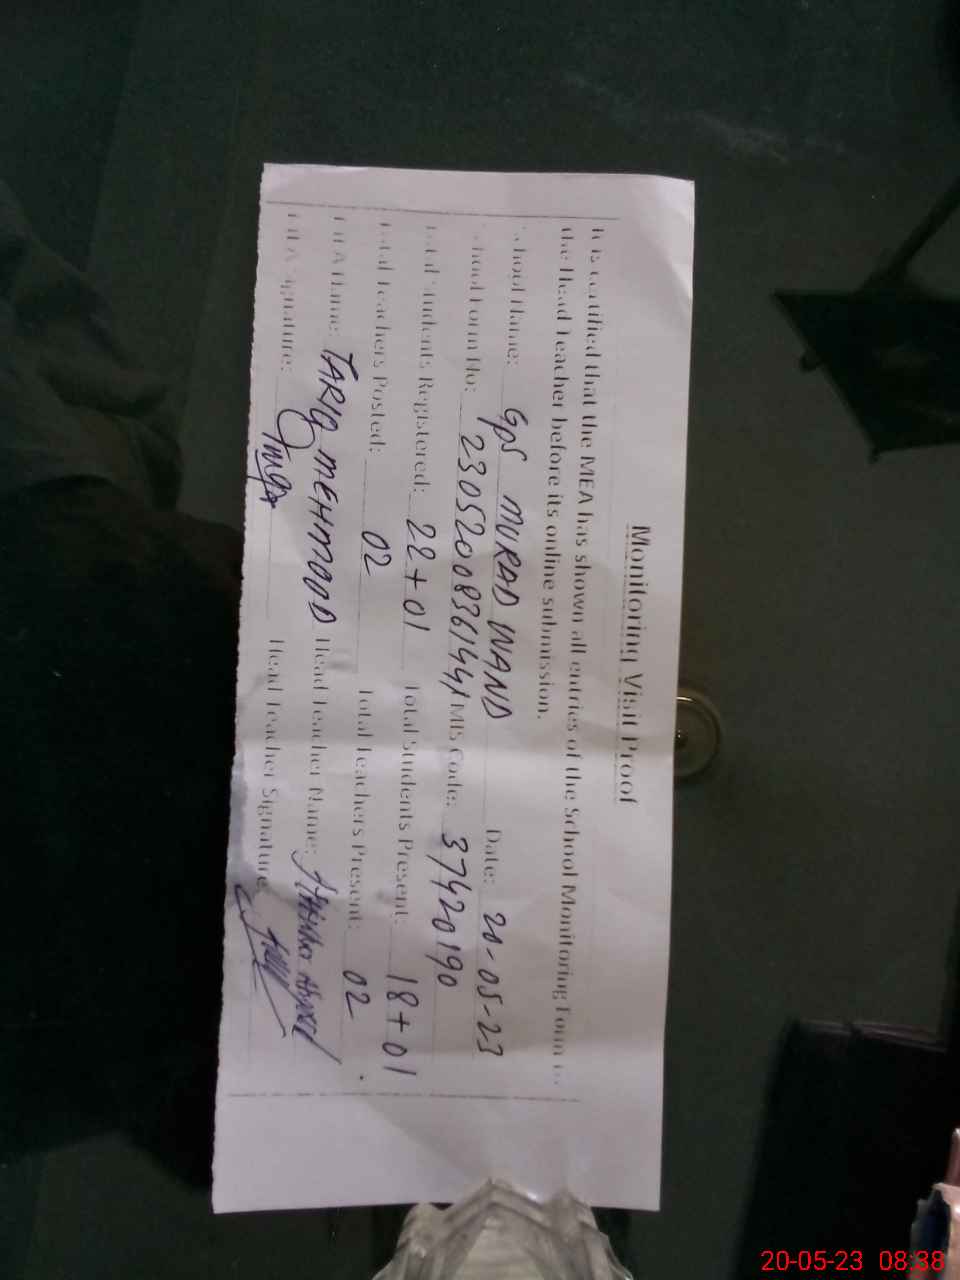 Monitoring Visit Proof
It is certified that the MEA has shown all entries of the School Monitoring Form to
the Head Teacher before its online submission.
School Name: GPS MURAD WAND Date: 20-05-23
School Form No: 23052008361441 EMIS Code: 37420190
Total Students Registered: 22+01 Total Students Present: 18+01
Total Teachers Posted: 02 Total Teachers Present: 02
MEA Name: TARIQ MEHMOOD Head Teacher Name:
MEA Signature: Head Teacher Signature:
20-05-23 08:38